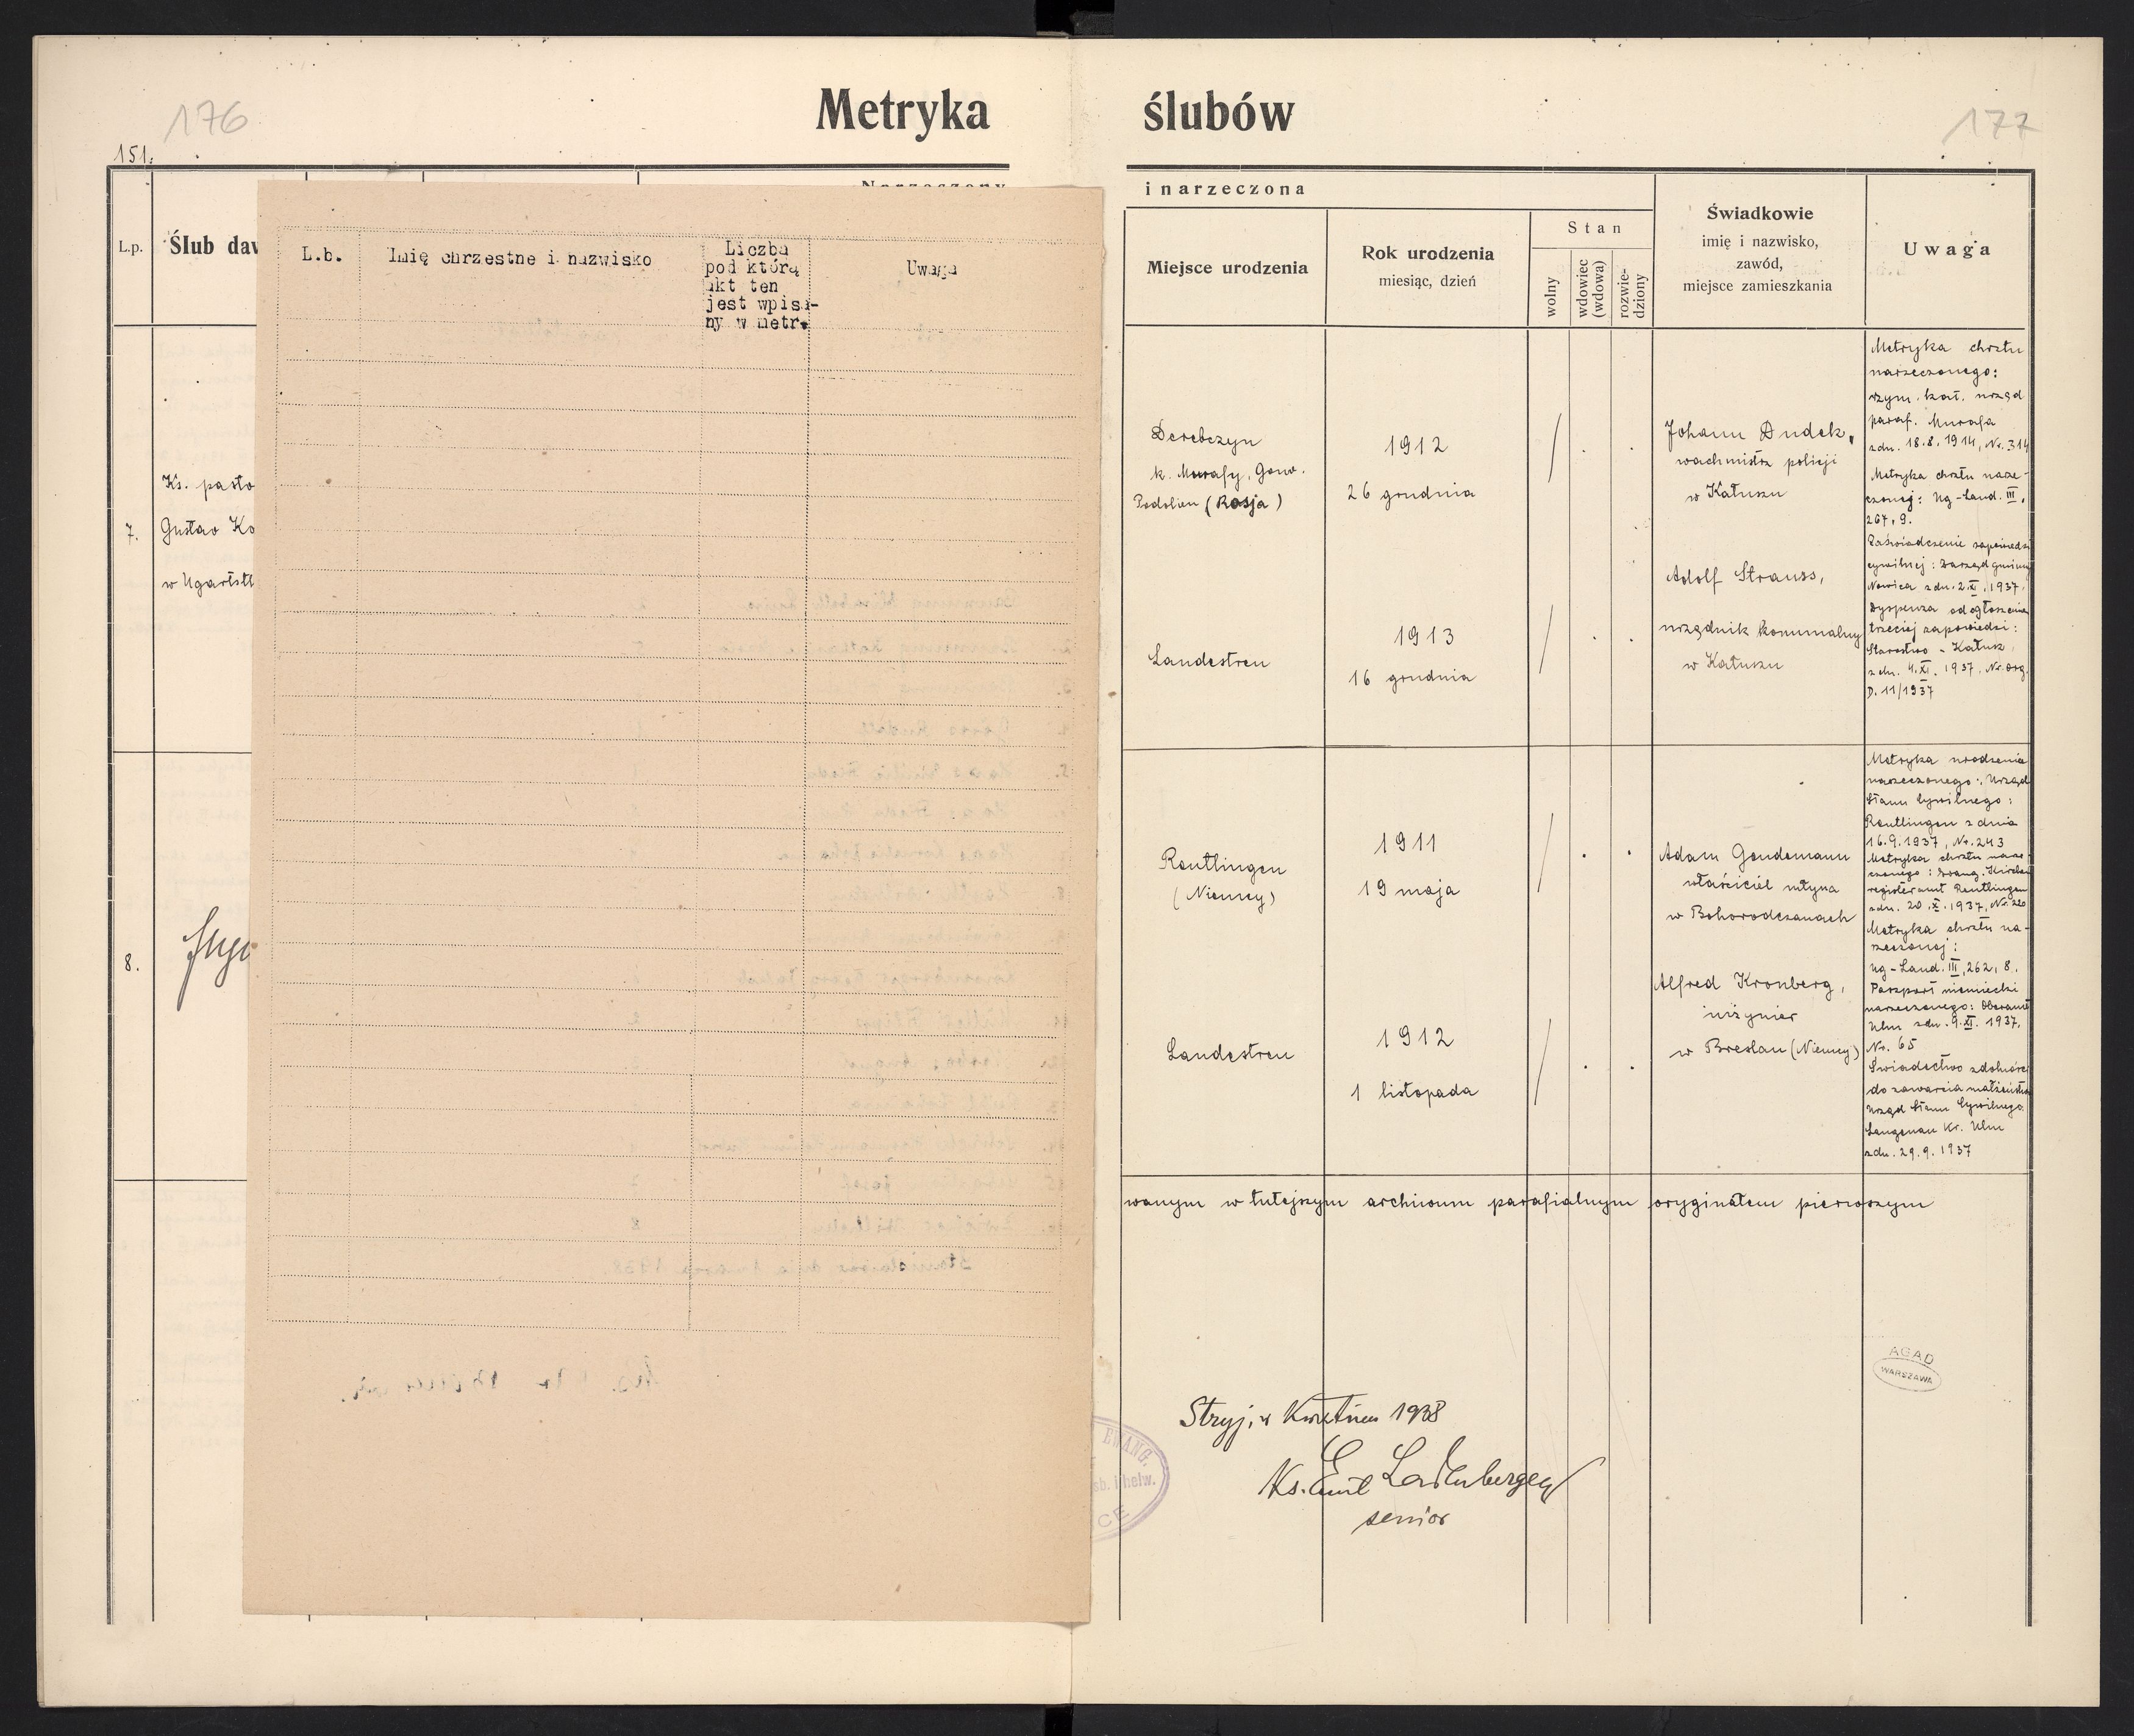 176
177
Metryka ślubów
151.
L.p.
Ślub daw
Narzeczony
i narzeczona
Miejsce urodzenia
Rok urodzenia
miesiąc, dzień
Stan
wolny
wdowiec
(wdowa)
rozwie-
dziony
Świadkowie
imię i nazwisko,
zawód,
miejsce zamieszkania
Uwaga
L.b.
Imię chrzestne i nazwisko
Liczba
pod którą
akt ten
jest wpisa-
ny w metr.
Uwaga
7.
Ks. pasto
Gustav Ko
w Ugartsth
Derebczyn
k. Murafy, Gouv.
Podolien (Rosja)
1912
26 grudnia
Landestreu
1913
16 grudnia
Johann Dudek,
wachmistrz policji
w Kałuszu
Adolf Strauss,
urzędnik komunalny
w Kałuszu
Metryka chrztu
narzeczonego:
rzym. kat. urząd
paraf. Murafa
z dn. 18.8.1914, Nr. 314
Metryka chrztu narze-
czonej: Ug-Land. III,
267, 9.
Zaświadczenie zapowiedzi
cywilnej: Zarząd gminy
Nowica z dn. 2.XI.1937.
Dyspenza od ogłoszenia
trzeciej zapowiedzi:
Starostwo - Kałusz,
z dn. 4.XI.1937, Nr. org.
D. 11/1937
8.
Reutlingen
(Niemcy)
1911
19 maja
Landestreu
1912
1 listopada
Adam Gendemann
właściciel młyna
w Bohorodczanach
Alfred Kronberg,
inżynier
w Breslau (Niemcy)
Metryka urodzenia
narzeczonego: Urząd
Stanu Cywilnego:
Reutlingen z dnia
16.9.1937, Nr. 243
Metryka chrztu narze-
czonego: Evang. Kirchen
registeramt Reutlingen
z dn. 20.X.1937, Nr. 220
Metryka chrztu na-
rzeczonej:
Ug-Land. III, 262, 8.
Paszport niemiecki
narzeczonego: Oberamt
Ulm z dn. 9.XI.1937,
Nr. 65
Świadectwo zdolności
do zawarcia małżeństwa
Urząd Stanu Cywilnego:
Langenau Kr. Ulm
z dn. 29.9.1937
wanym w tutejszym archiwum parafialnym oryginałem pierwszym
AGAD
WARSZAWA
Stryj, w Kwietniu 1938
Ks. Emil Ladenberger
senior
EWANG.
sb. i helw.
CE